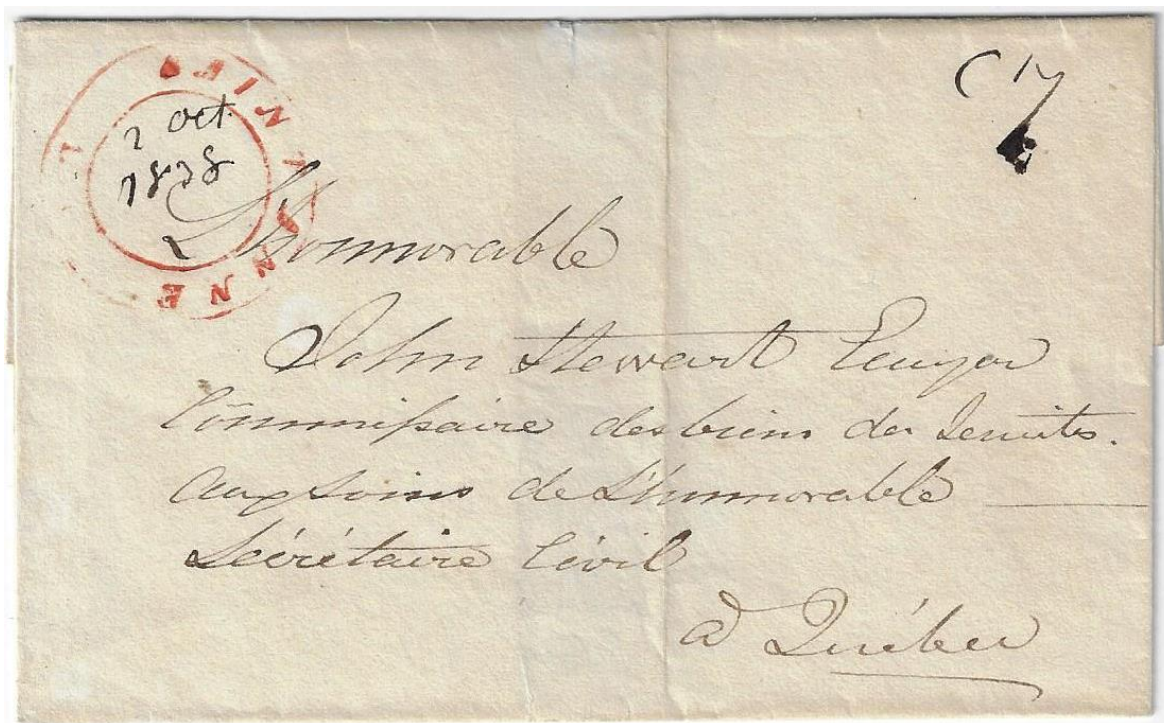 SAINTE ANNE L
2 Oct.
1838
C 7
L'honnorable
John Stewart Ecuyer
Commissaire des biens des Jesuites.
Aux soins de L'hunnorable
Sécrétaire Civil
à Québec